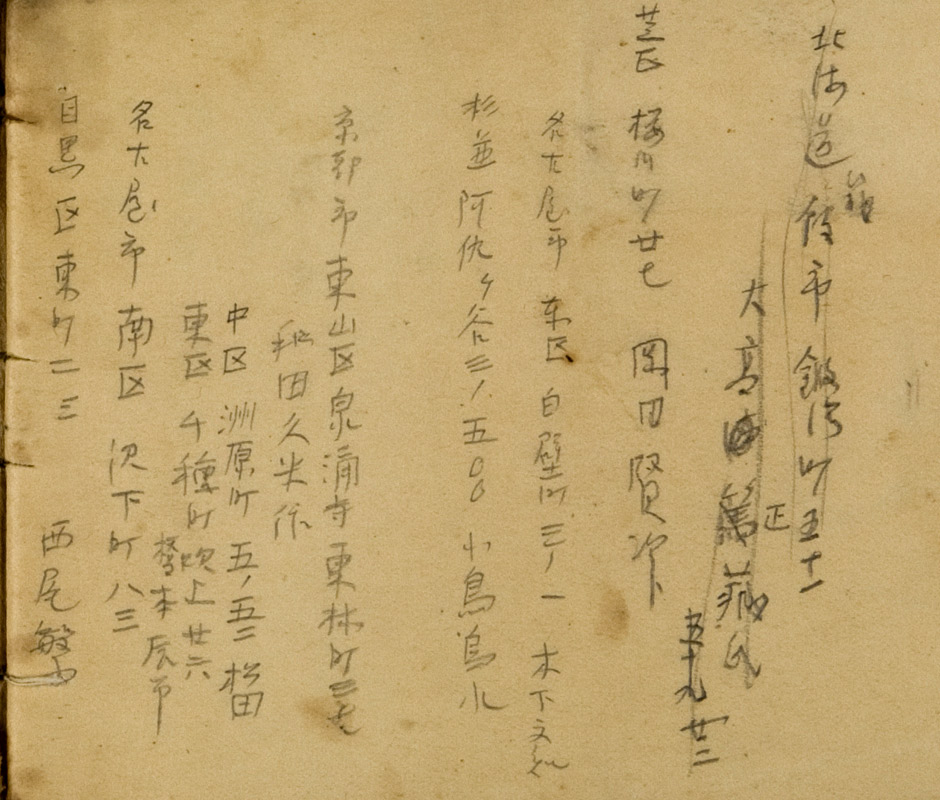 北海道 市 町五十一
正
大高 篤蔵氏
五十九 廿二
芝区 桜川町廿七 岡田賢次
名古屋市 东区 白壁町三ノ一 木下文
杉並 阿佐ケ谷三ノ五〇〇 小島烏水
京都市 東山区泉涌寺東林町三七
和田久米作
中区 洲原町 五ノ五二 松田
東区 千種町吹上廿六
橋本辰市
名古屋市 南区 沢下町 八三
目黒区東町二三 西尾繁